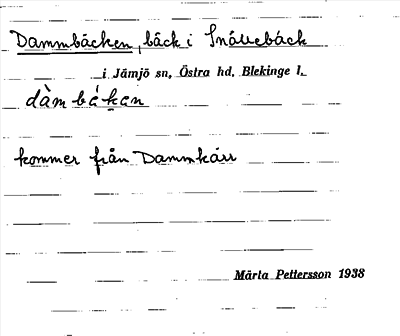 Dammbäcken, bäck i Snällebäck
i Jämjö sn, Östra hd, Blekinge l.
dàm bä́ken
kommer från Dammkärr
Märta Pettersson 1938